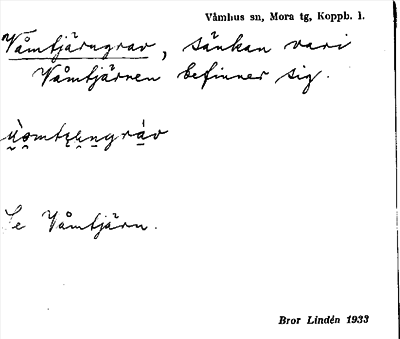 Våmhus sn, Mora tg, Koppb. l.
Våmtjärngrav, sänkan vari
Våmtjärnen befinner sig.
Se Våmtjärn.
Bror Lindén 1933